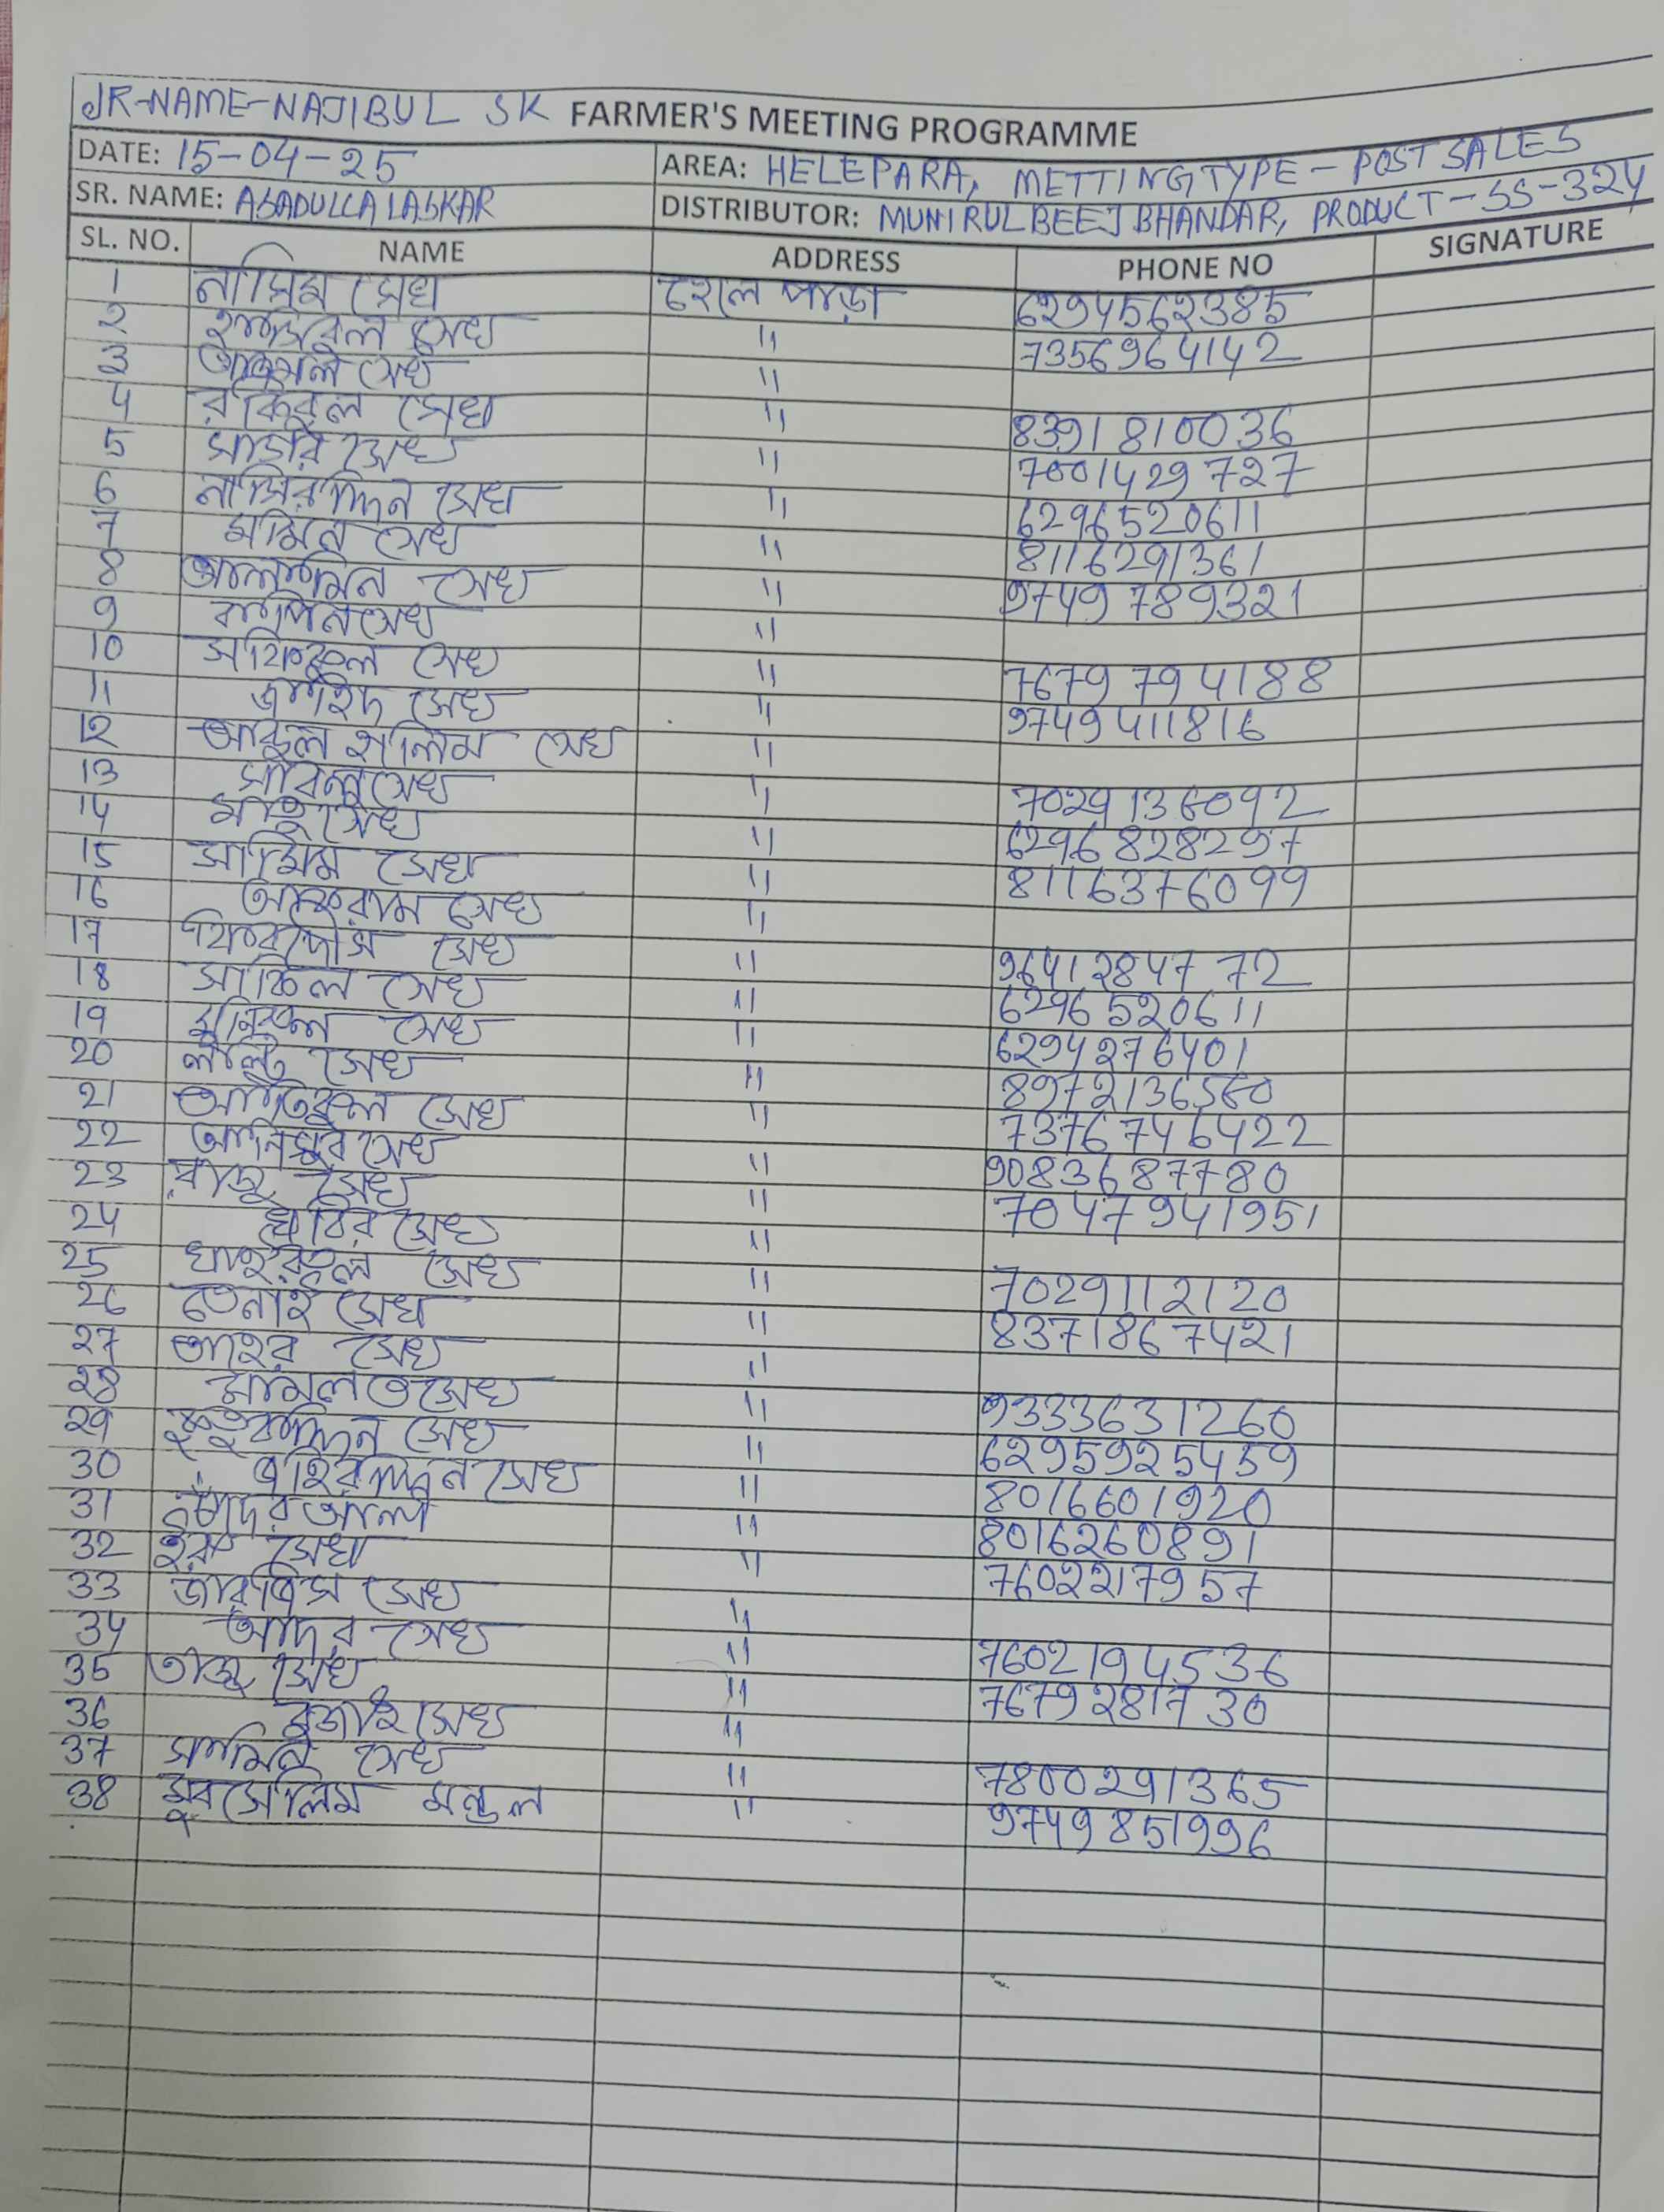 JR-NAME-NAJIBUL SK FARMER'S MEETING PROGRAMME
DATE: 15-04-25 AREA: HELEPARA, METTINGTYPE - POST SALES
SR. NAME: ASADULLA LASKAR DISTRIBUTOR: MUNIRUL BEEJ BHANDAR, PRODUCT-SS-324
SL. NO. NAME ADDRESS PHONE NO SIGNATURE
1 নাসিম সেখ হেলে পাড়া 6294562385
2 হাসিবুল সেখ " 7356964142
3 সেখ "
4 রকিবুল সেখ " 8391810036
5 সেখ " 7001429727
6 নাসিরদ্দিন সেখ " 6296520611
7 মমিন সেখ " 8116291361
8 আলামিন সেখ " 9749789321
9 সেখ "
10 সফিকুল সেখ " 7679794188
11 জাহিদ সেখ " 9749411816
12 আব্দুল হালিম সেখ "
13 সেখ " 7029136092
14 সেখ " 6296828297
15 সামিম সেখ " 8116376099
16 আকরাম সেখ "
17 ফিরদৌস সেখ " 9641284772
18 সাকিল সেখ " 6296520611
19 মনিরুল সেখ " 6294276401
20 লাল্টু সেখ " 8972136560
21 আতিকুল সেখ " 7376746422
22 আনিসুর সেখ " 9083687780
23 রাজু সেখ " 7047941951
24 সেখ "
25 খাইরুল সেখ " 7029112120
26 তেনাই সেখ " 8371867421
27 তাহের সেখ "
28 সেখ " 9333631260
29 কুতুবদ্দিন সেখ " 6295925459
30 জহিরদ্দিন সেখ " 8016601920
31 " 8016260891
32 সেখ " 7602217957
33 জারজিস সেখ
34 আদর সেখ "
35 তাজু সেখ " 7602194536
36 সেখ " 7679281730
37 সামিন সেখ " 7800291365
38 মুরসেলিম মন্ডল " 9749851996